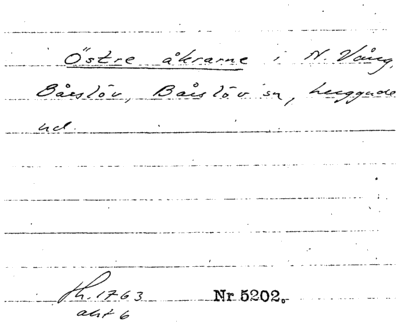 Östre åkrarne i N. Vång,
Bårslöv, Bårslöv sn, Luggude
hd.
Sk. 1763
akt 6
Nr 5202.